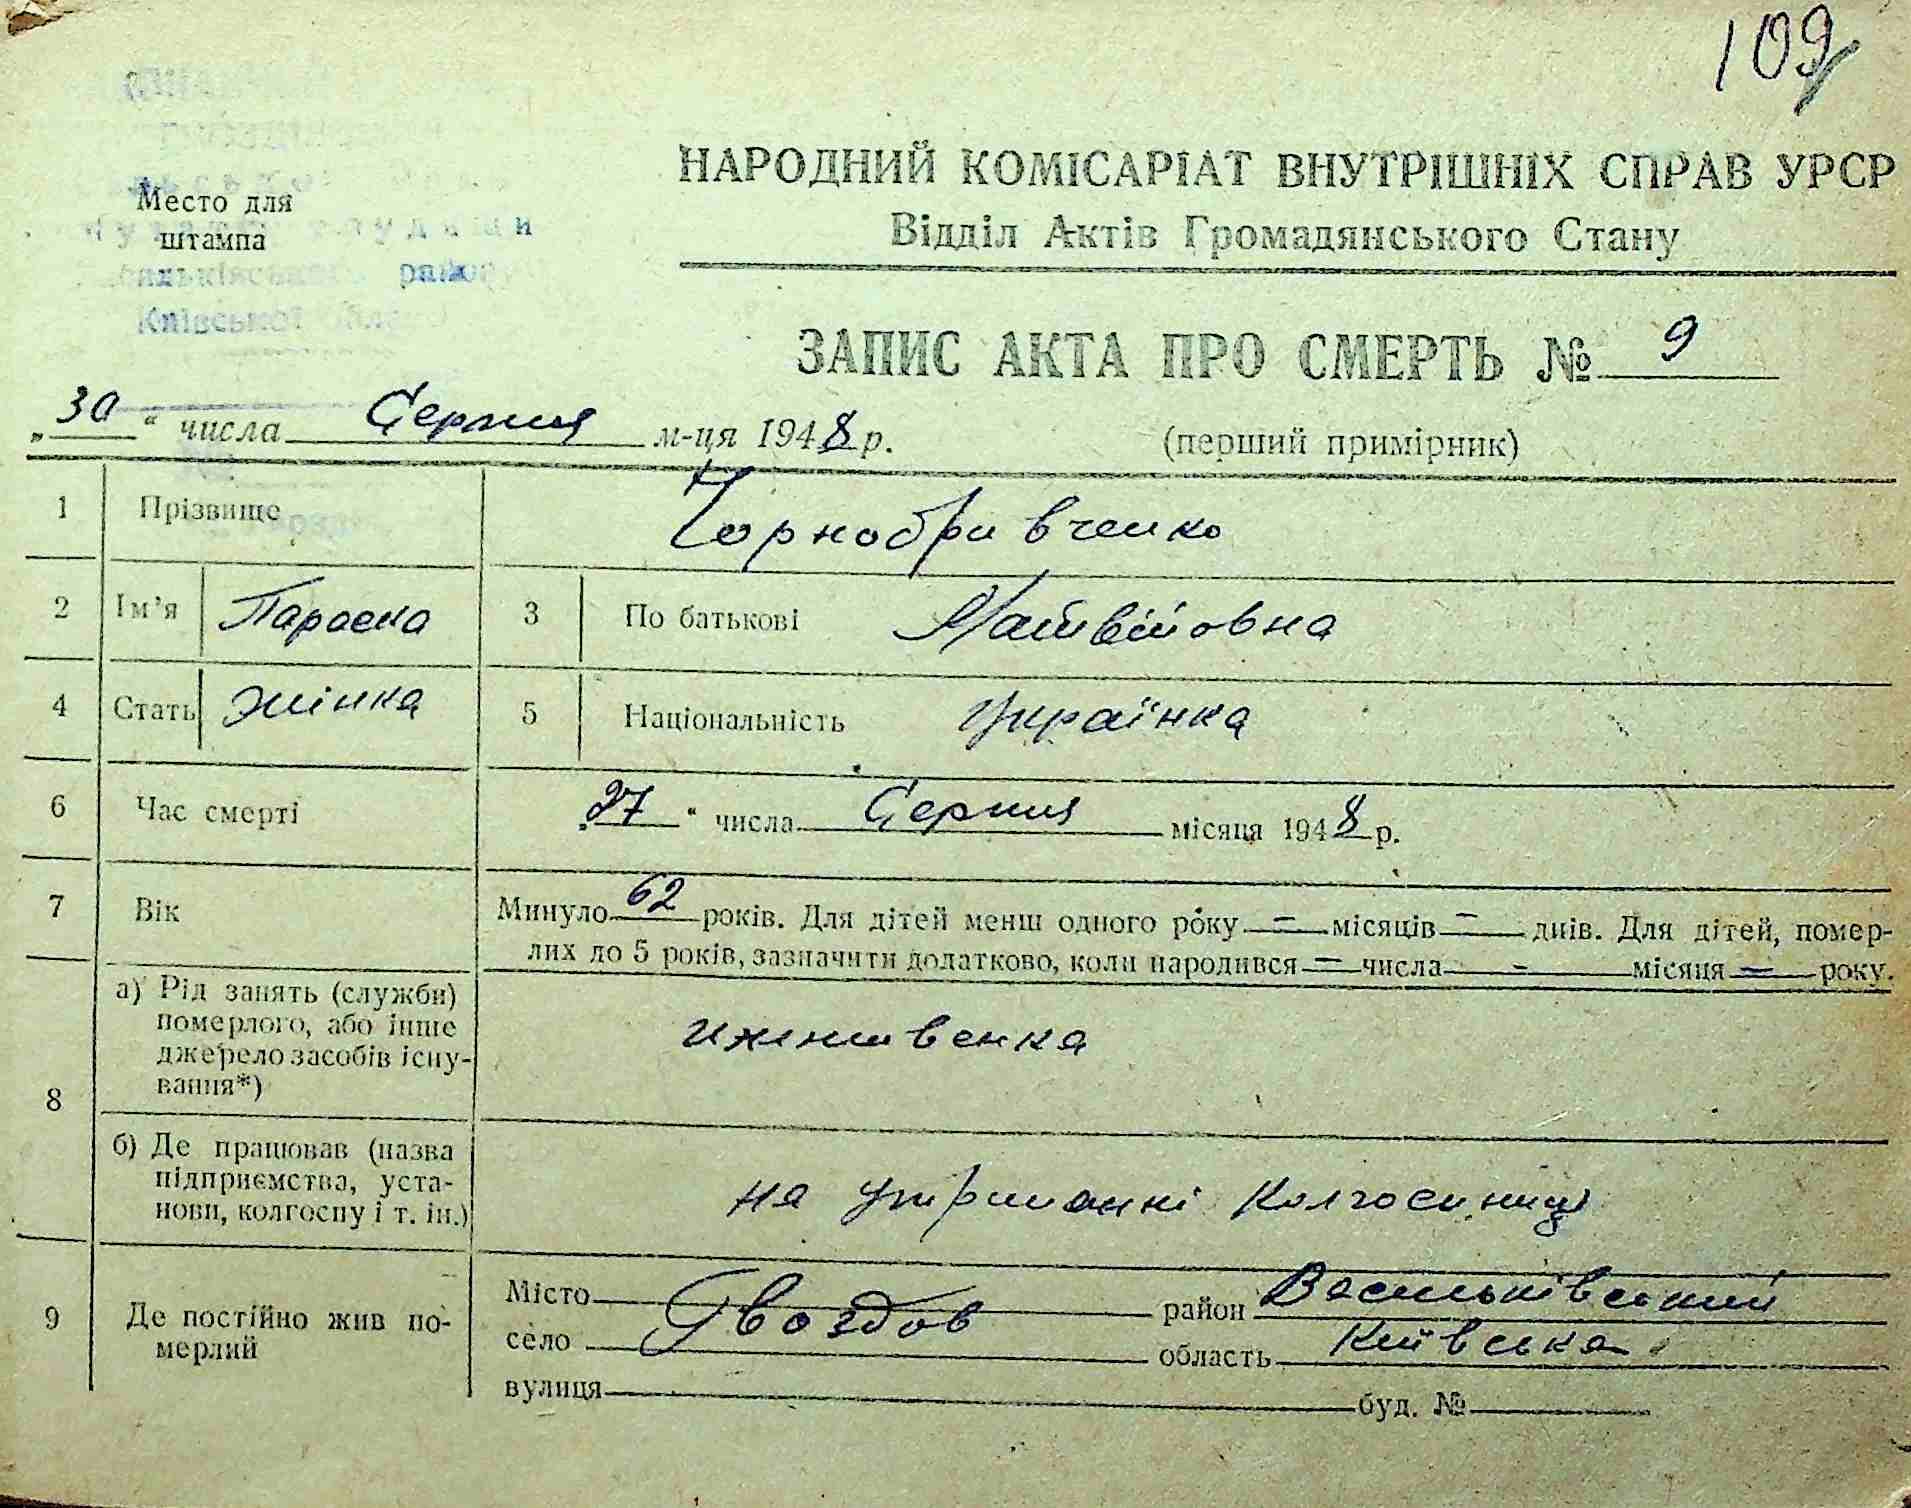 109
НАРОДНИЙ КОМІСАРІАТ ВНУТРІШНІХ СПРАВ УРСР
Відділ Актів Громадянського Стану
Место для
штампа
району
Київської
ЗАПИС АКТА ПРО СМЕРТЬ № 9
„30“ числа Серпня м-ця 1948 р. (перший примірник)
1 Прізвище Чорнобривченко
2 Ім’я Параска 3 По батькові Матвійовна
4 Стать жінка 5 Національність Українка
6 Час смерті „27“ числа Серпня місяця 1948 р.
7 Вік Минуло 62 років. Для дітей менш одного року — місяців — днів. Для дітей, помер-
лих до 5 років, зазначити додатково, коли народився — числа - місяця — року.
8 а) Рід занять (служби)
померлого, або інше
джерело засобів існу-
вання*)
ижешвенка
б) Де працював (назва
підприємства, уста-
нови, колгоспу і т. ін.)
на утриманні колгоспниці
9 Де постійно жив по-
мерлий
Місто
село Гвоздов
район Васильківський
область Київська
вулиця буд. №